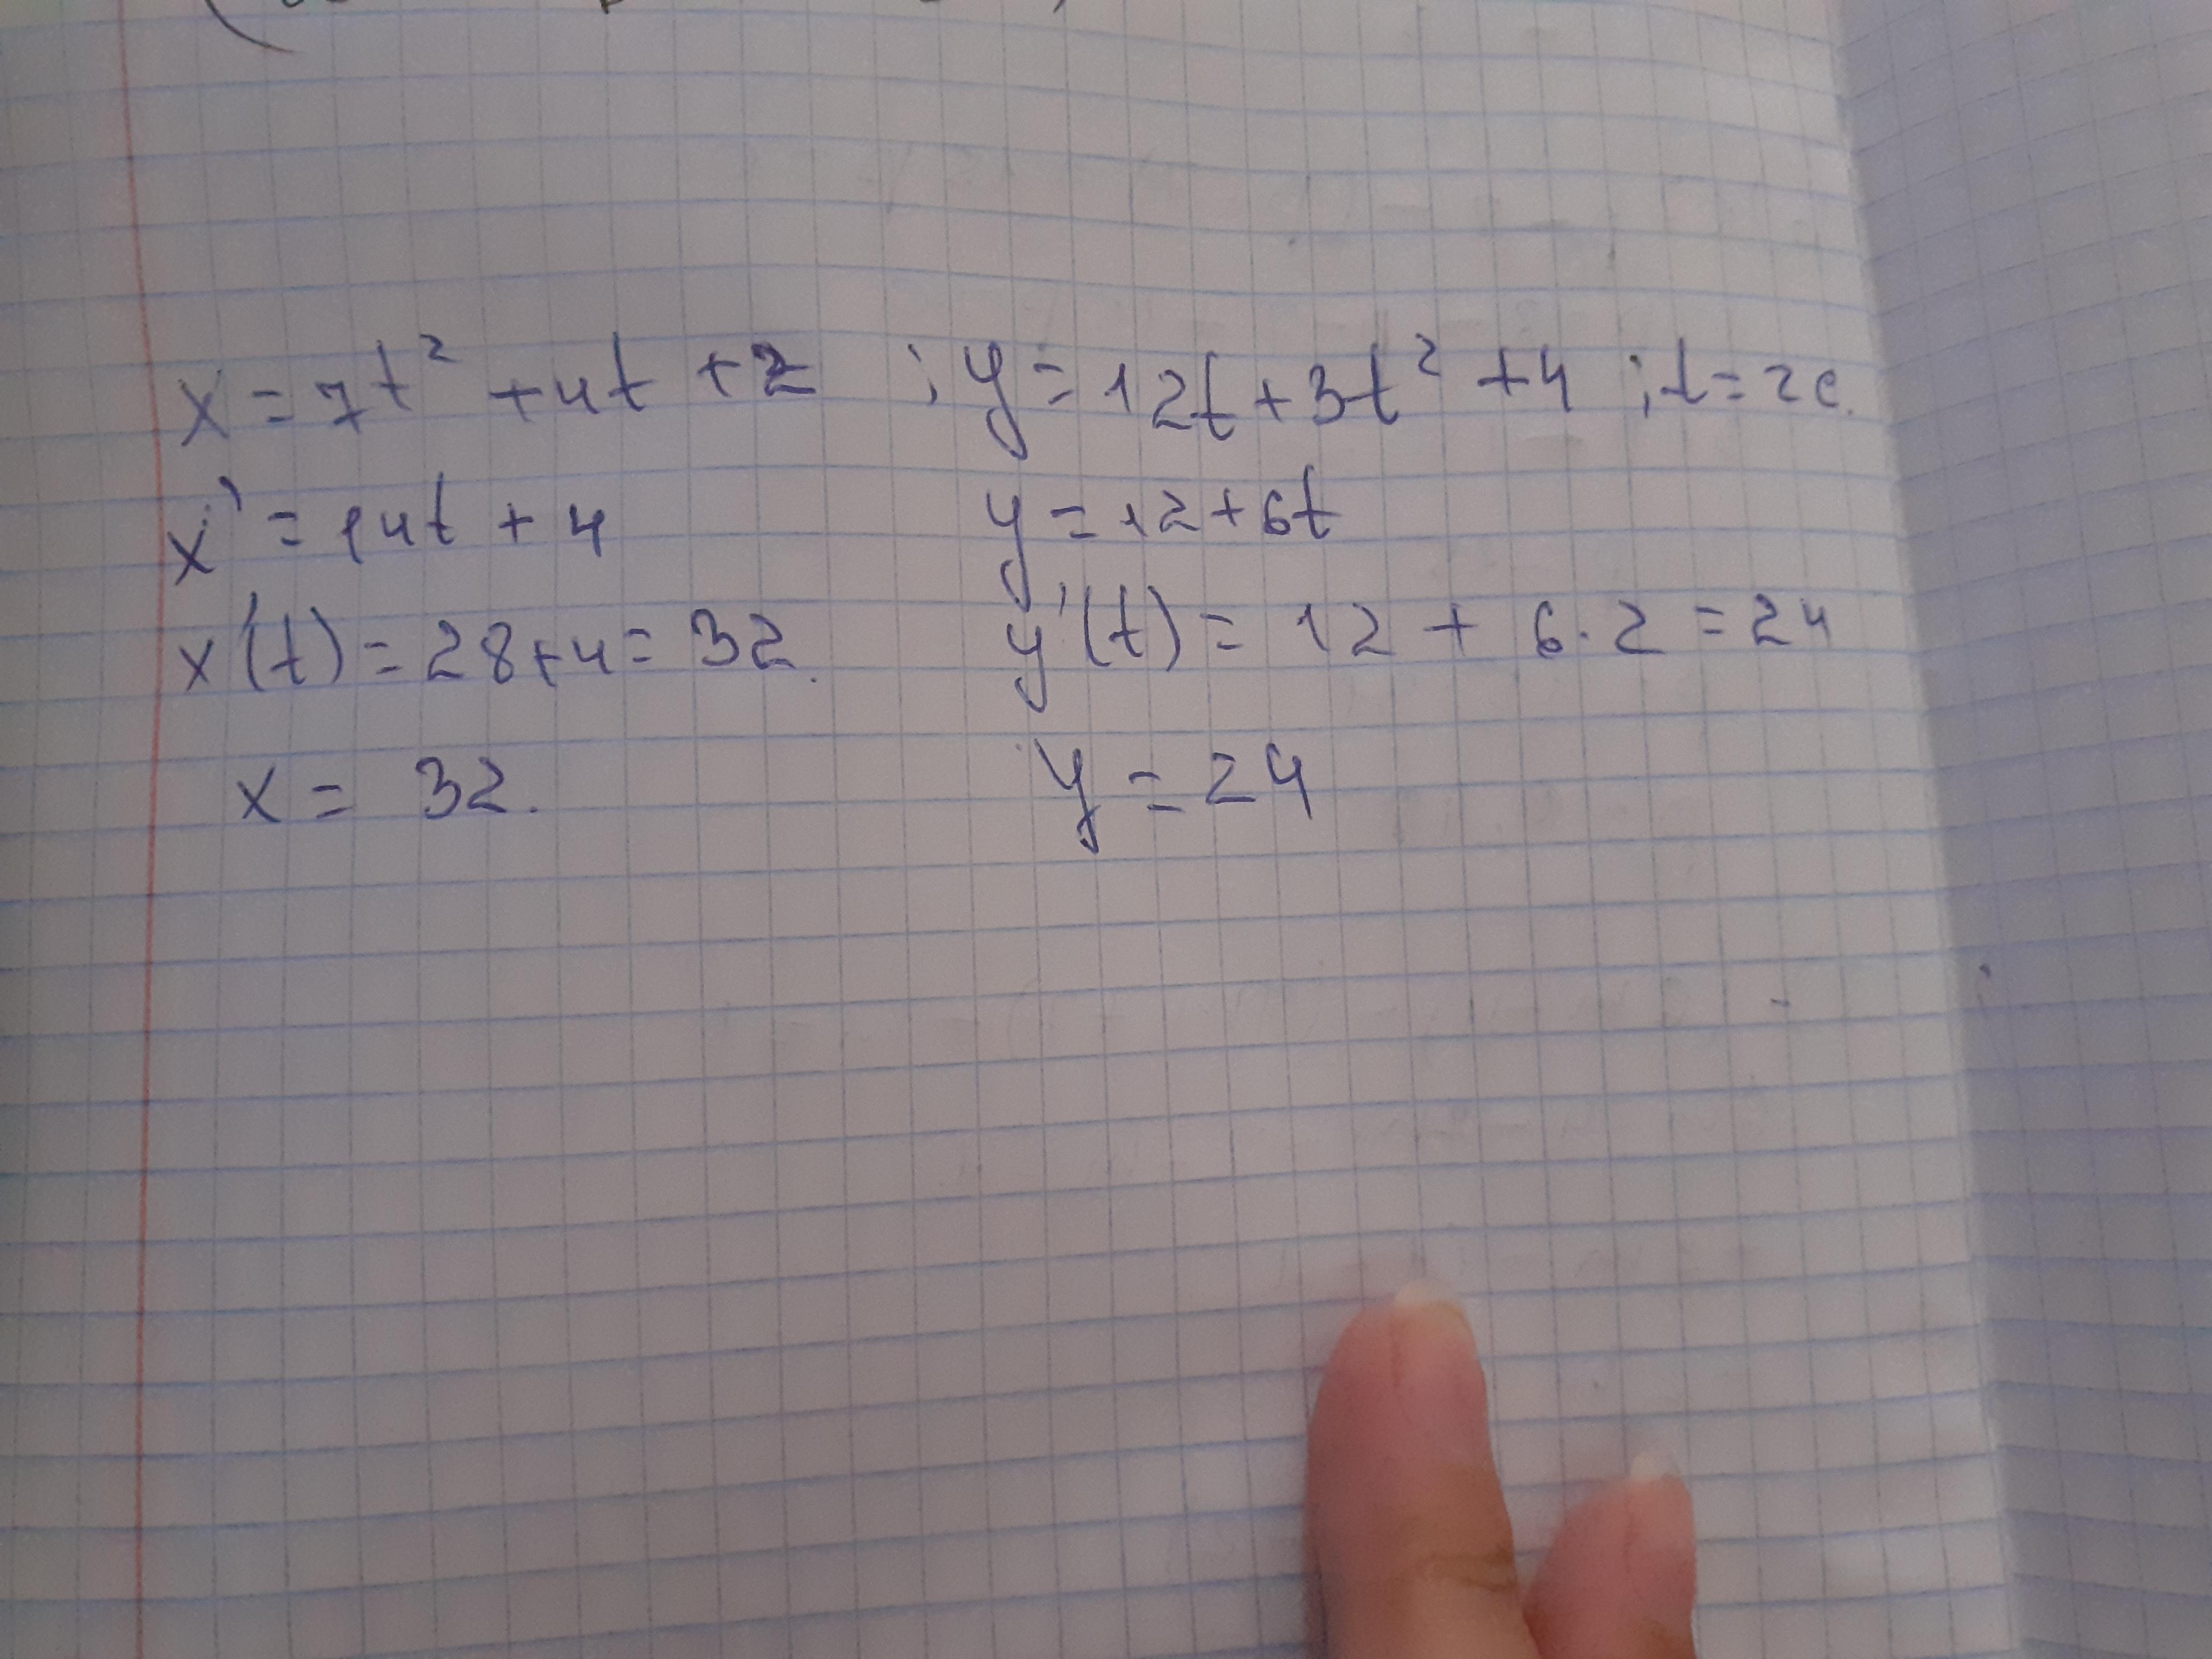 x = 7t² + 4t + 2 ; y = 12t + 3t² + 4 ; t = 2c.
x' = 14t + 4 y = 12 + 6t
x'(t) = 28 + 4 = 32. y'(t) = 12 + 6 · 2 = 24
x = 32. y = 24